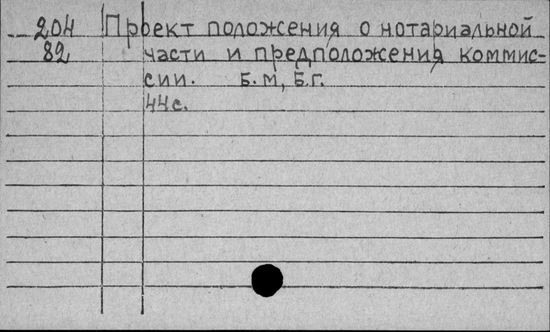 204 Проект положения о нотариальной
82 части и предположения коммис-
сии. Б.М, Б.Г.
44с.